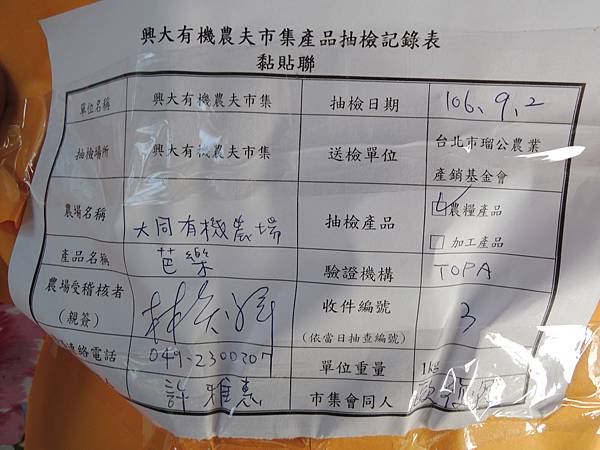 興大有機農夫市集產品抽檢記錄表
黏貼聯
單位名稱 興大有機農夫市集 抽檢日期 106、9、2
抽檢場所 興大有機農夫市集 送檢單位 台北市瑠公農業
產銷基金會
農場名稱 大同有機農場 抽檢產品 農糧產品
加工產品
產品名稱 芭樂 驗證機構 TOPA
農場受稽核者
(親簽) 林
收件編號
(依當日抽查編號) 3
連絡電話 049-2300207 單位重量 1kg
人 許雅惠 市集會同人